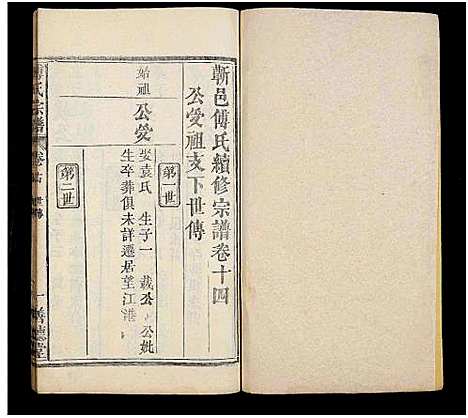 蘄邑傅氏續修宗譜卷十四
公受祖支下世傳
第一世
始祖 公受
娶袁氏 生子一 裁公 公妣
生卒葬俱未詳遷居望江港
第二世
傅氏宗譜 卷十四 世傳 一